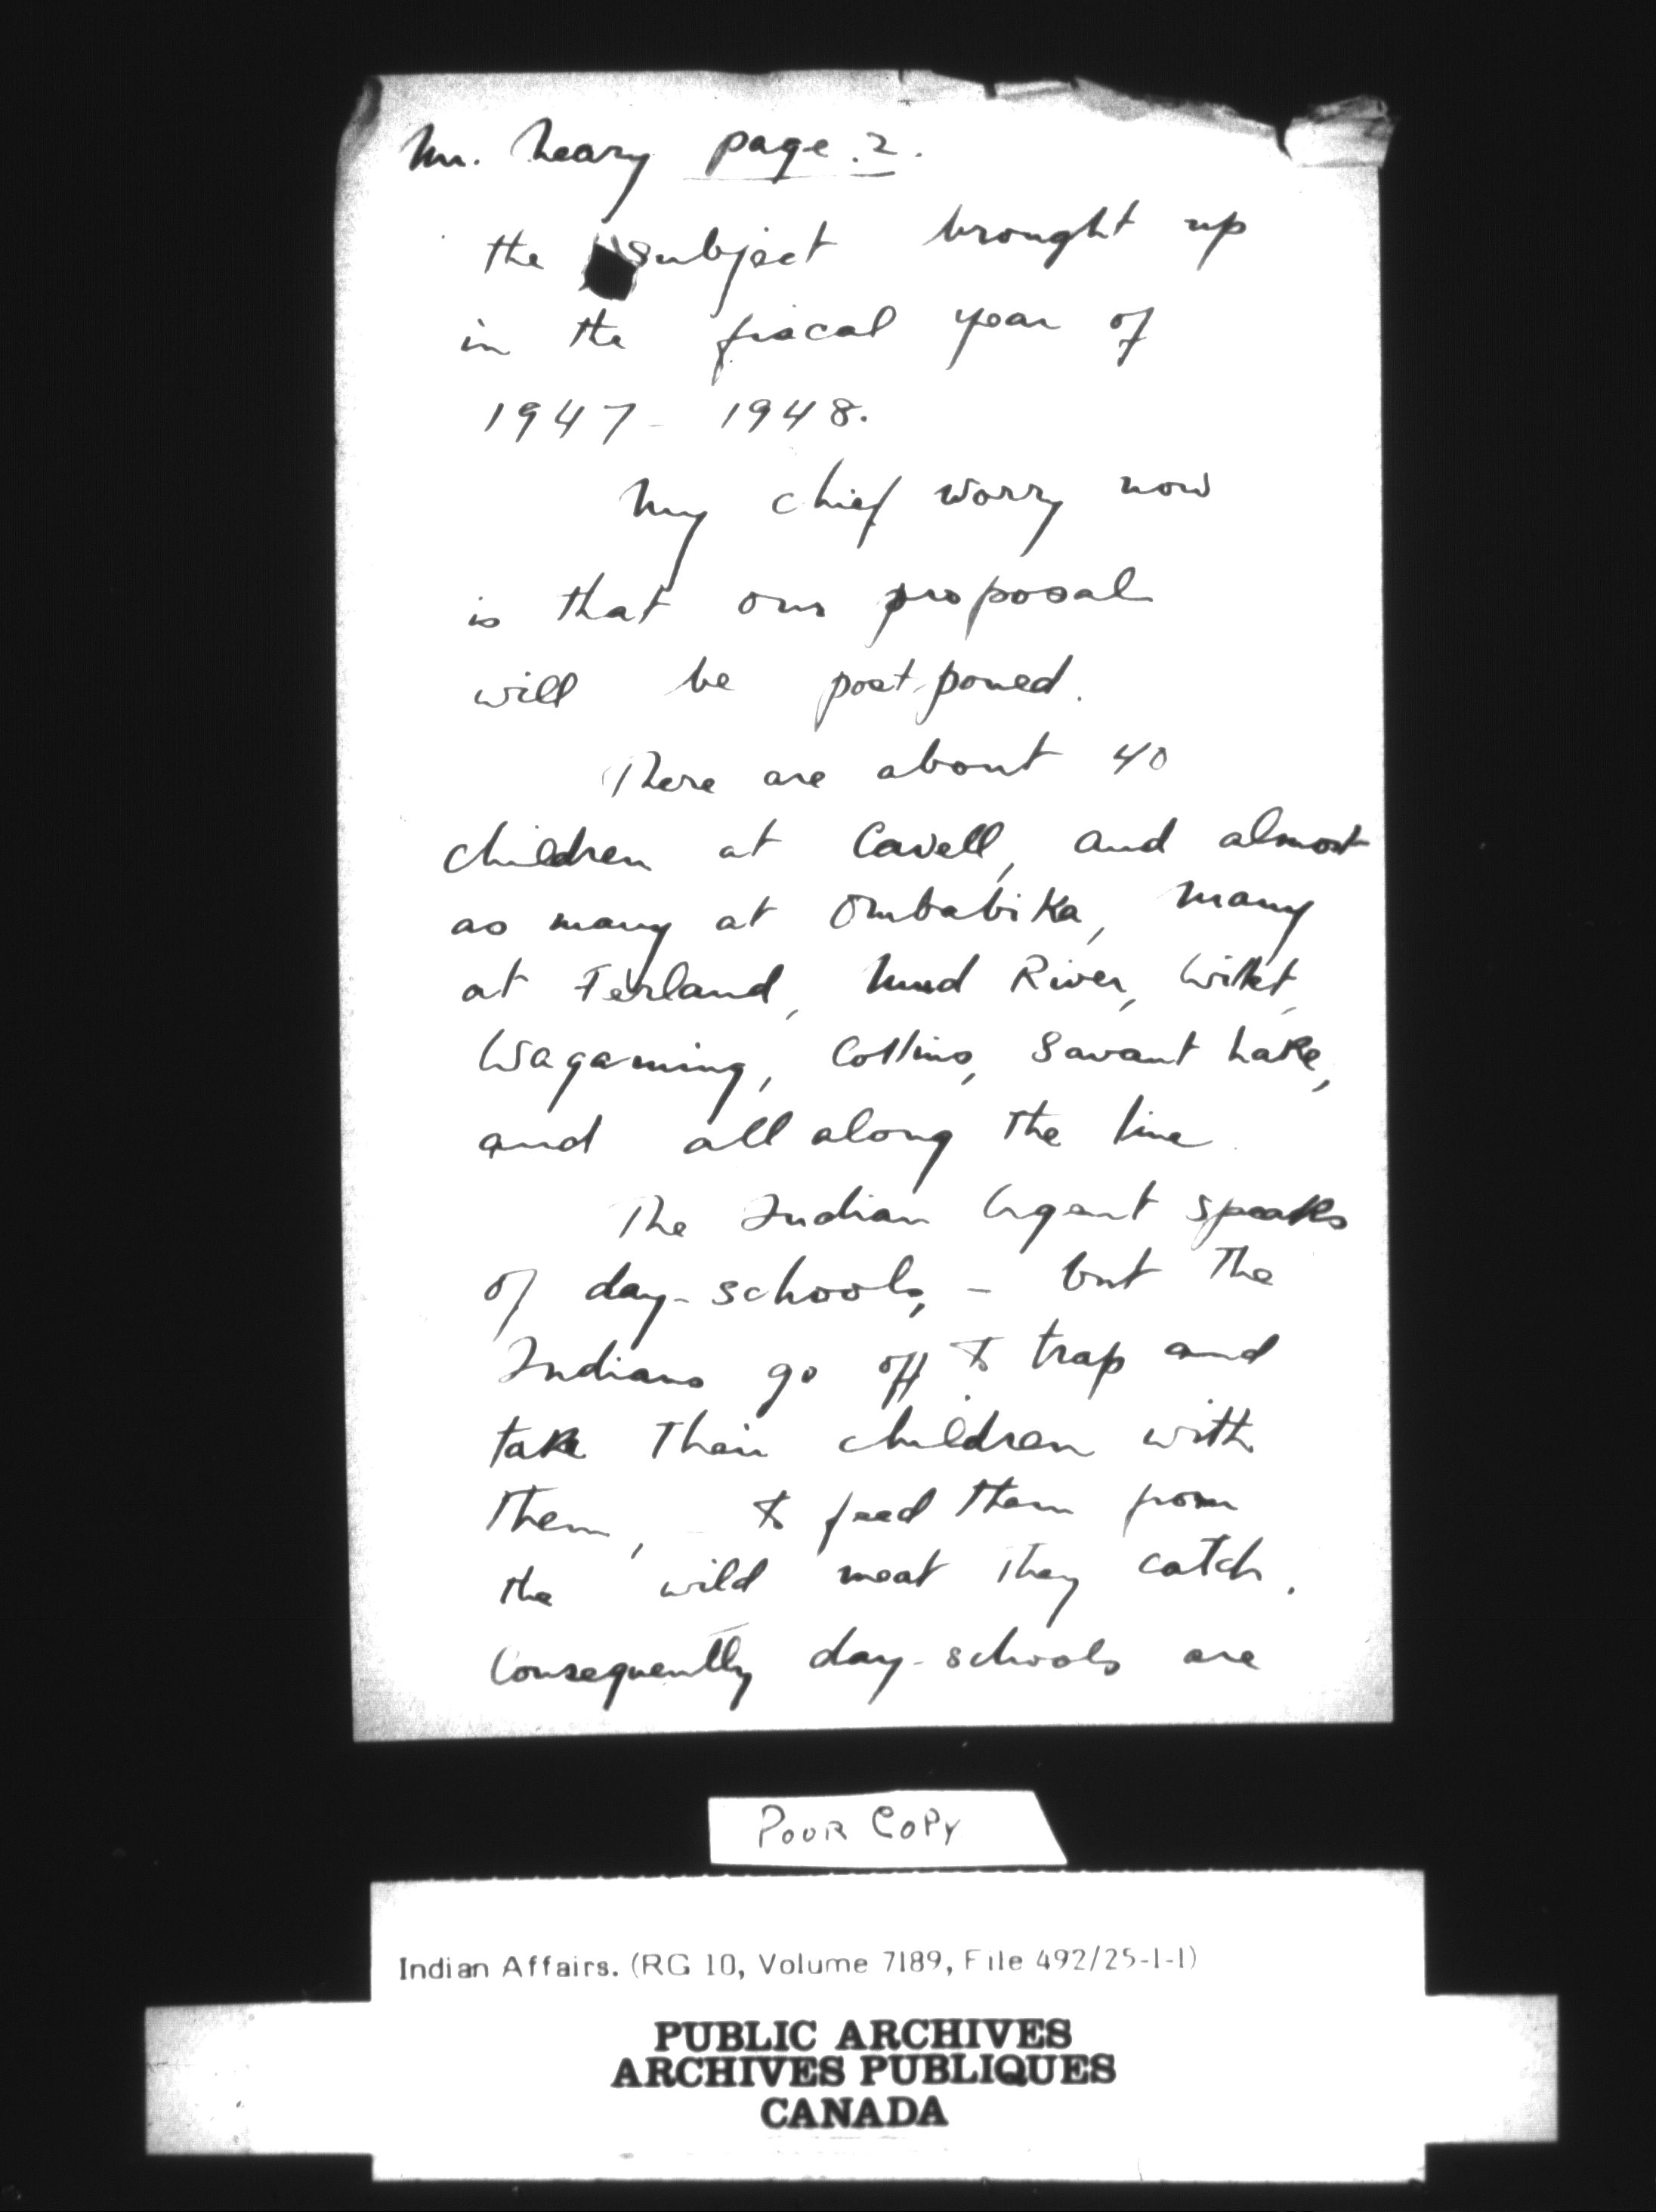 Mr. Neary page. 2.
the subject brought up
in the fiscal year of
1947 - 1948.
My chief worry now
is that our proposal
will be postponed.
There are about 40
children at Cavell, and almost
as many at Ombabika, many
at Ferland, Mud River, Willet,
Wagaming, Collins, Savant Lake,
and all along the line.
The Indian Agent speaks
of day-schools, - but the
Indians go off to trap and
take their children with
them, - to feed them from
the wild meat they catch.
Consequently day-schools are
POOR COPY
Indian Affairs. (RG 10, Volume 7189, File 492/25-1-1)
PUBLIC ARCHIVES
ARCHIVES PUBLIQUES
CANADA